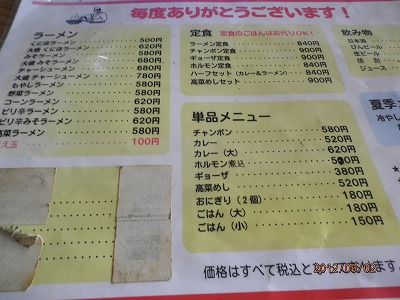 毎度ありがとうございます！
ラーメン
くにほラーメン 500円
大盛くにほラーメン 620円
みそラーメン 580円
大盛みそラーメン 680円
チャーシューメン 680円
大盛チャーシューメン 780円
もやしラーメン 580円
野菜ラーメン 580円
コーンラーメン 620円
ピリ辛ラーメン 580円
ピリ辛みそラーメン 620円
高菜ラーメン 580円
え玉 100円
定食 定食のごはんはお代りOK！
ラーメン定食 840円
チャンポン定食 900円
ギョーザ定食 900円
ホルモン定食 840円
ハーフセット（カレー＆ラーメン） 840円
高菜めしセット 900円
飲み物
日本酒
びんビール
生ビール
焼酎
ジュース
単品メニュー
チャンポン 580円
カレー 520円
カレー（大） 620円
ホルモン煮込
ギョーザ 380円
高菜めし 520円
おにぎり（２個） 180円
ごはん（大） 180円
ごはん（小） 150円
夏季
冷やし
価格はすべて税込と